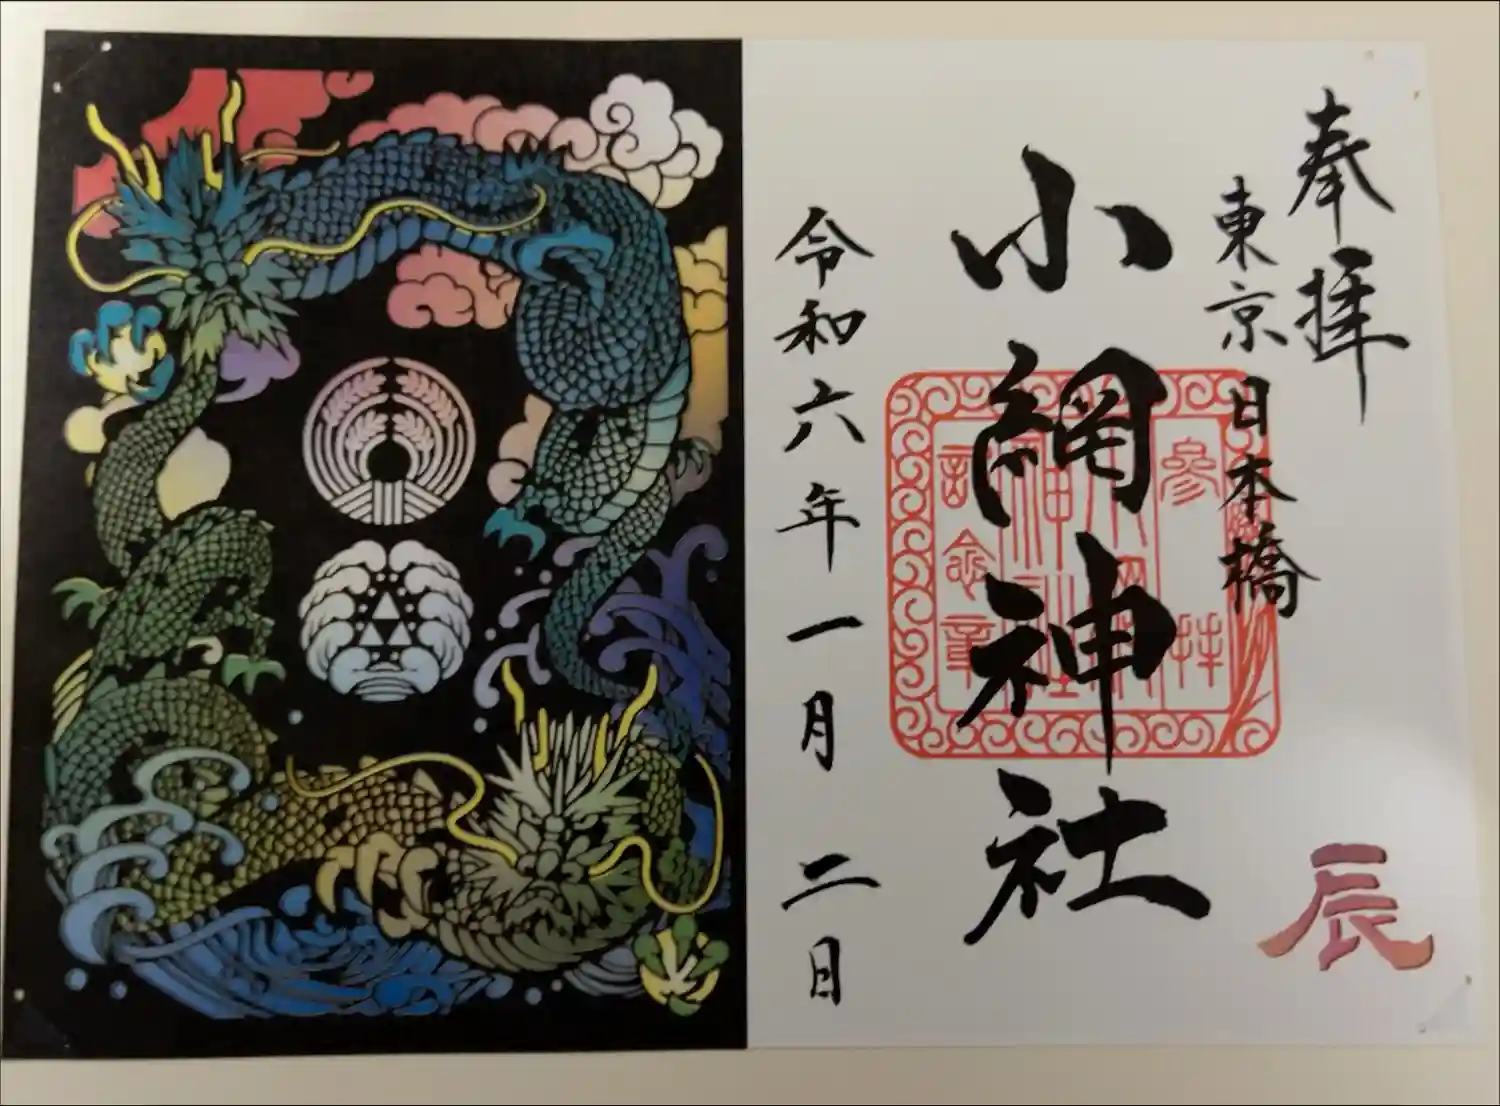 奉拝
東京 日本橋
小網神社
参拝
小網神社
記念章
令和六年一月二日
辰